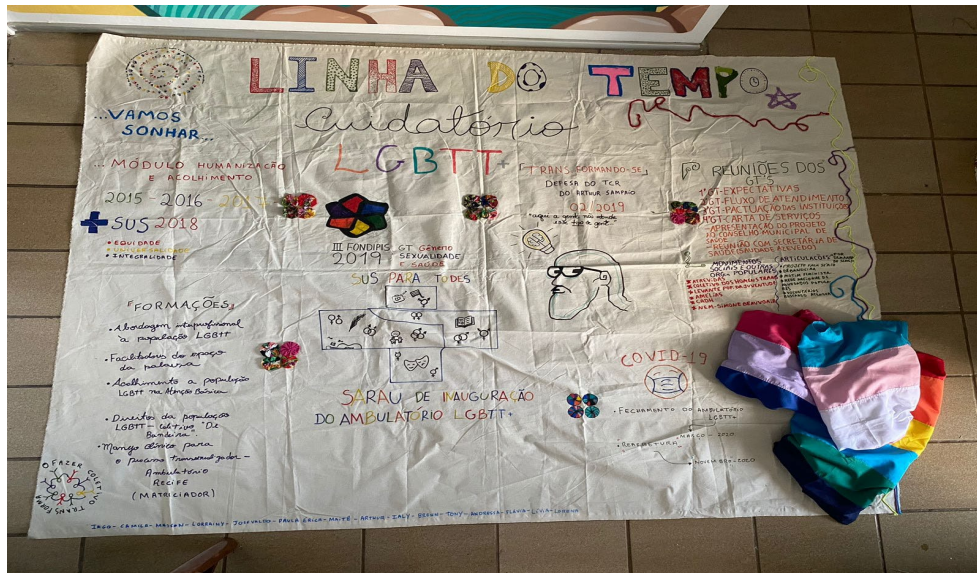 LINHA DO TEMPO
Cuidatório
LGBTT+
...VAMOS
SONHAR...
... MÓDULO HUMANIZAÇÃO
E ACOLHIMENTO
2015-2016-
SUS 2018
• EQUIDADE
• UNIVERSALIDADE
• INTEGRALIDADE
III FONDIPIS
2019
GT Gênero
SEXUALIDADE
E SAÚDE
SUS PARA TODES
「TRANS FORMANDO-SE」
DEFESA DO TCR
DO ARTHUR SAMPAIO
02/2019
"aqui a gente não atende
esse tipo de gente"
REUNIÕES DOS
GT'S
1ºGT-EXPECTATIVAS
2ºGT-FLUXO DE ATENDIMENTO
3ºGT-PACTUAÇÃO DAS INSTITUIÇÕES
4ºGT-CARTA DE SERVIÇOS
-APRESENTAÇÃO DO PROJETO
AO CONSELHO MUNICIPAL DE
SAÚDE
-REUNIÃO COM SECRETÁRIA DE
SAÚDE
MOVIMENTOS
SOCIAIS E OUTRAS
ORG. POPULARES
COLETIVO DOS HOMENS TRANS
LEVANTE POP. DA JUVENTUDE
AMELIAS
NEM-SIMONE BEAUVOIR
ARTICULAÇÕES
「FORMAÇÕES」
• Abordagem interprofissional
a população LGBTT
• Facilitadores do espaço
da palavra
• Acolhimento a população
LGBTT na Atenção Básica
• Direitos da população
LGBTT - Coletivo "De
Bandeira".
• Manejo clínico para
o processo transexualizador -
Ambulatório
RECIFE
(MATRICIADOR)
SARAU DE INAUGURAÇÃO
DO AMBULATÓRIO LGBTT+
COVID-19
• FECHAMENTO DO AMBULATÓRIO
LGBTT+
MARÇO - 2020
• REABERTURA
NOVEMBRO-2020
O FAZER COLETIVO TRANSFORMA
IAGO - CAMILA - MAICON - LORRAINY - JOSEVALDO - PAULA ÉRICA - MAITÊ - ARTHUR - IALY - BRUNO - TONY - ANDRESSA - FLÁVIA - LÍVIA - LORENA